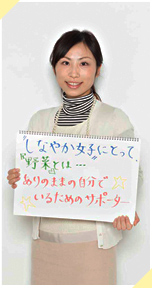 "しなやか女子"にとって、
『野菜』とは…
ありのままの自分で
いるためのサポーター